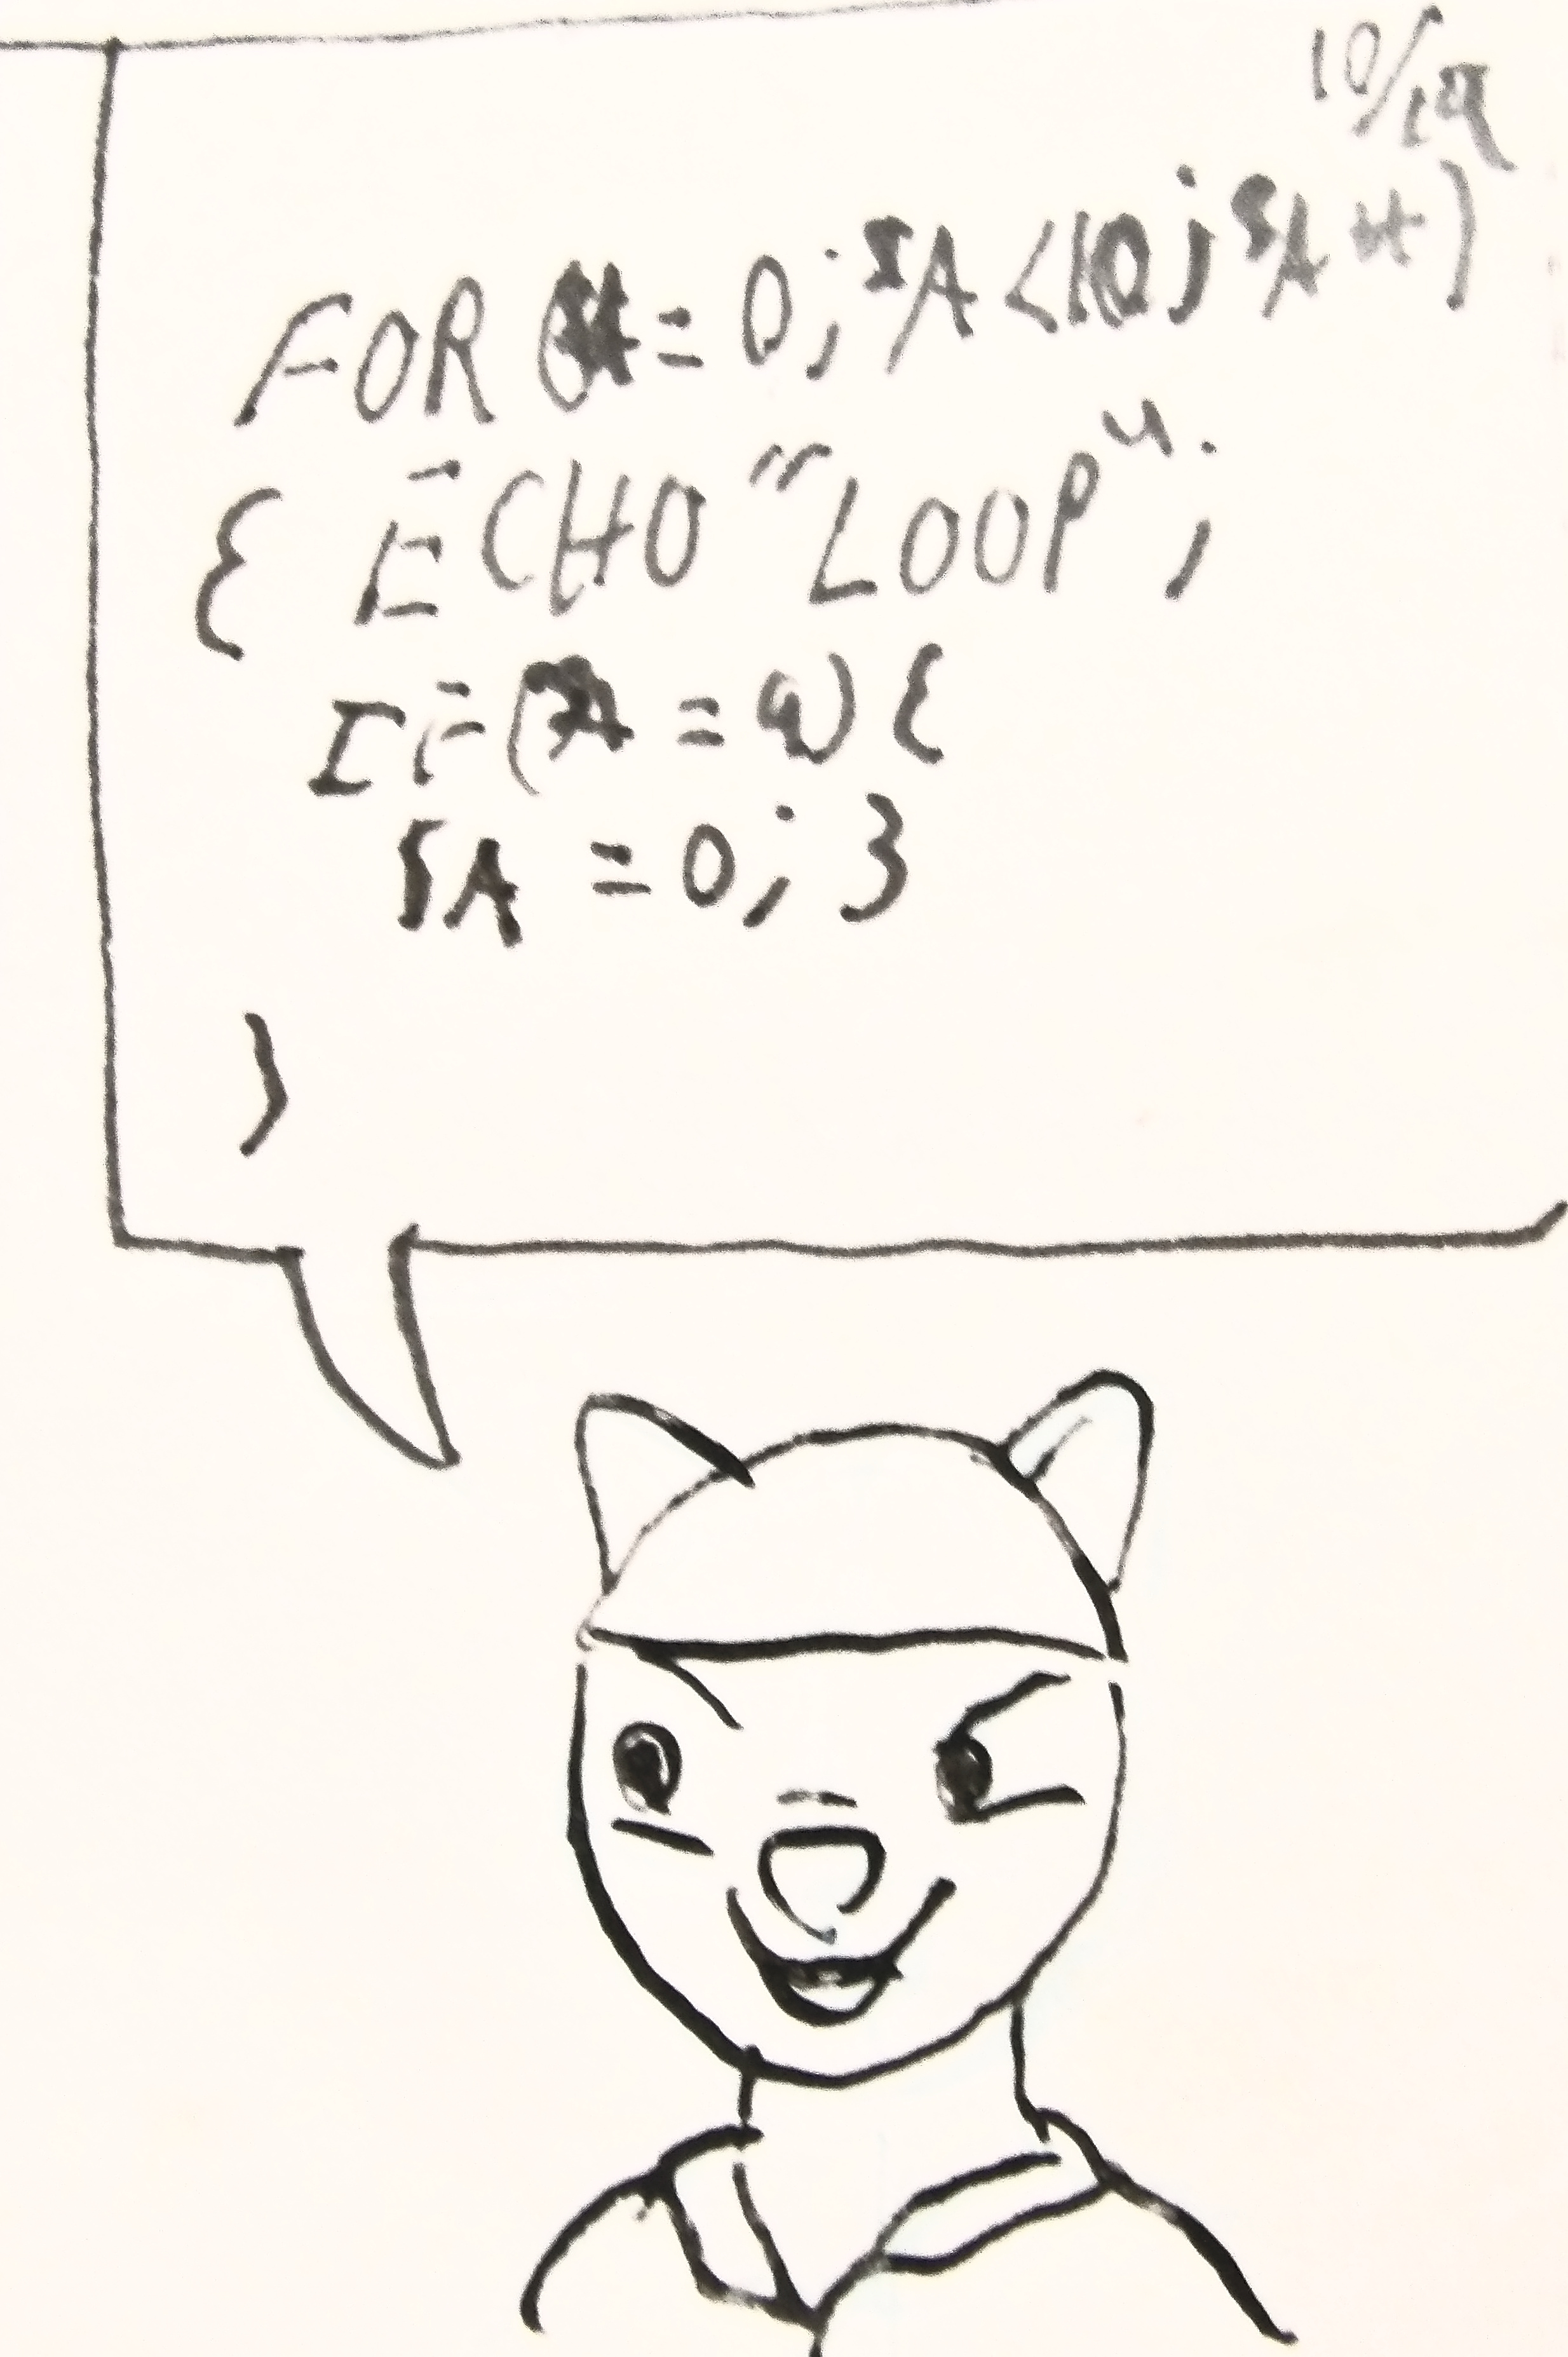 10/19
FOR ($A = 0; $A < 10; $A ++)
{ ECHO "LOOP";
IF ($A = 9) {
$A = 0; }
}